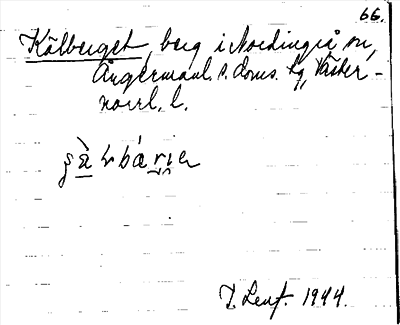 66.
Kålberget, berg i Nordingrå sn,
Ångermanl. s. doms. tg, Väster-
norrl. l.
T. Leuf. 1944.